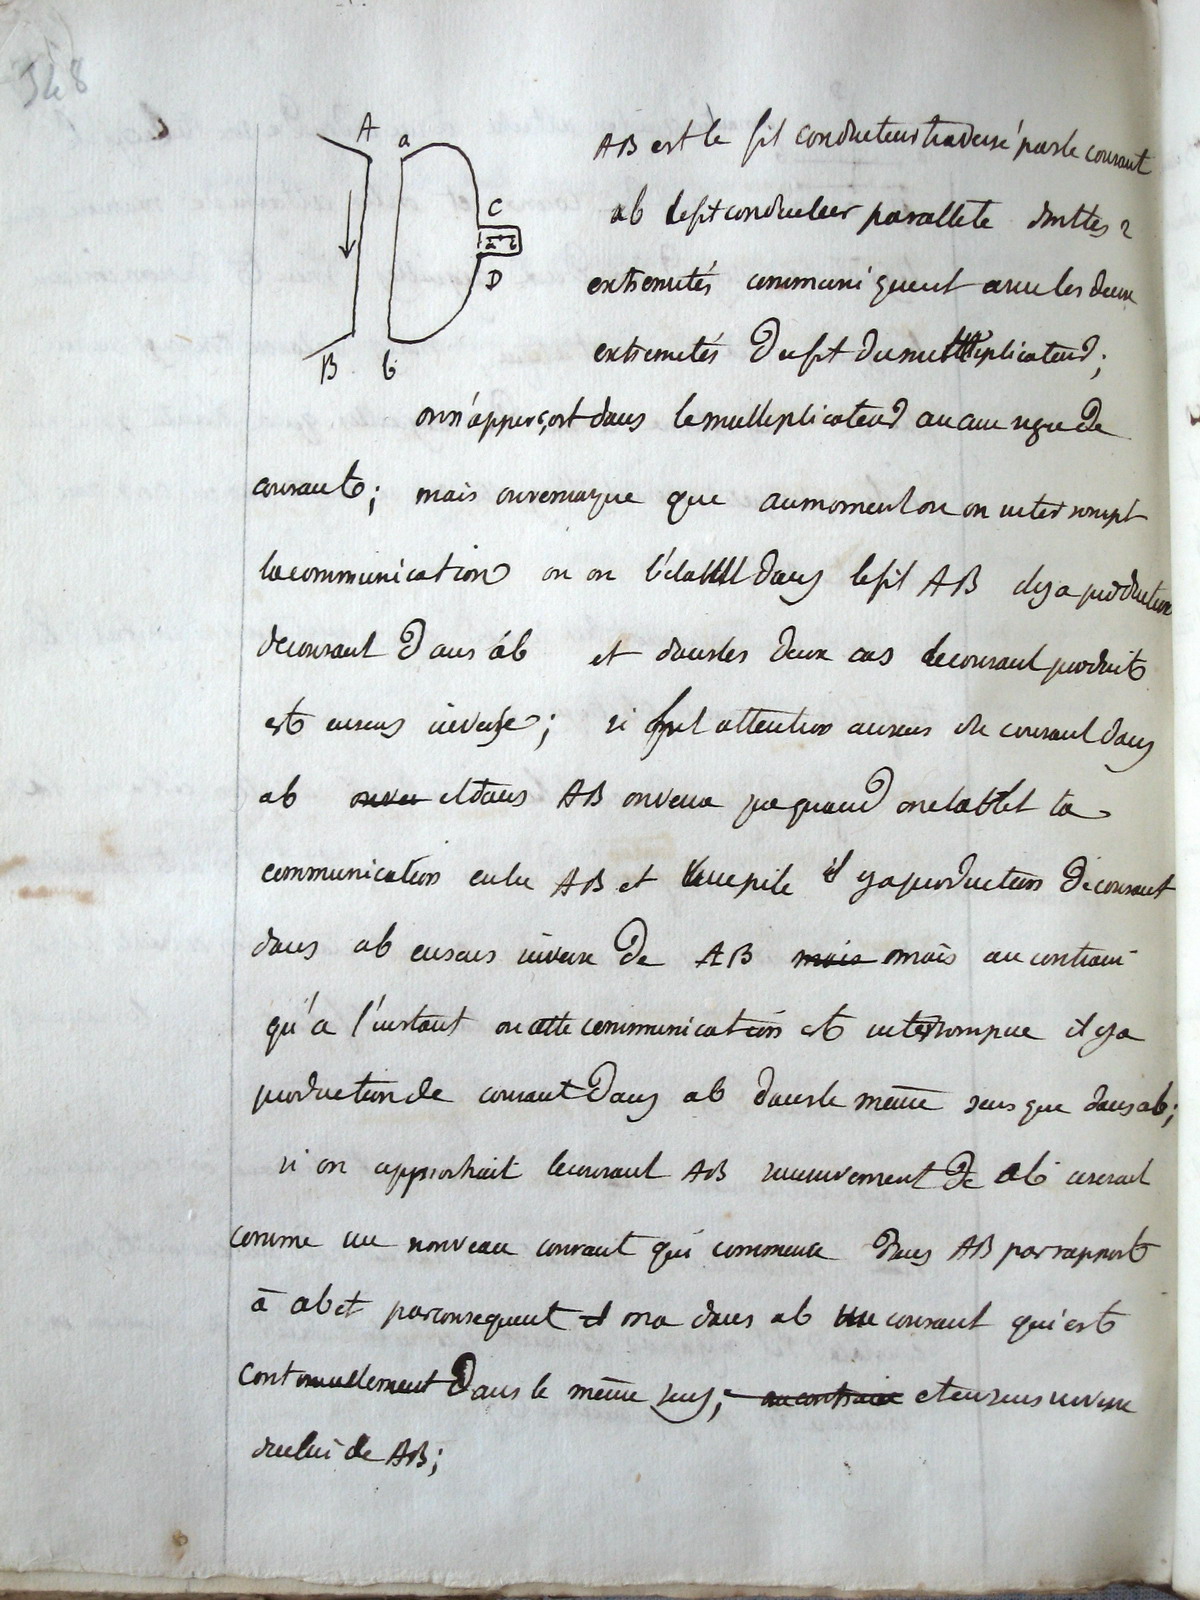 348
A a
C
a b
D
B b
AB est le fil conducteur traversé par le courant
ab le fil conducteur parallele dont les 2
extremités communiquent avec les deux
extremités du fil du multiplicateur;
on n'apperçoit dans le multiplicateur aucun signe de
courant; mais on remarque que au moment ou on interrompt
la communication ou on l'établit dans le fil AB il y a production
de courant dans ab et dans les deux cas le courant produit
est en sens inverse; si attention au sens du courant dans
ab et dans AB on verra que quand on etablit la
communication entre AB et une pile il y a production de courant
dans ab en sens inverse de AB mais mais au contraire
qu'a l'instant ou cette communication est interrompue il y a
production de courant dans ab dans le même sens que dans ab;
si on approchait le courant AB successivement de ab ce serait
comme un nouveau courant qui commence dans AB par rapport
à ab et par consequent on a dans ab un courant qui est
continuellement dans le même sens; au contraire et en sens inverse
de celui de AB;